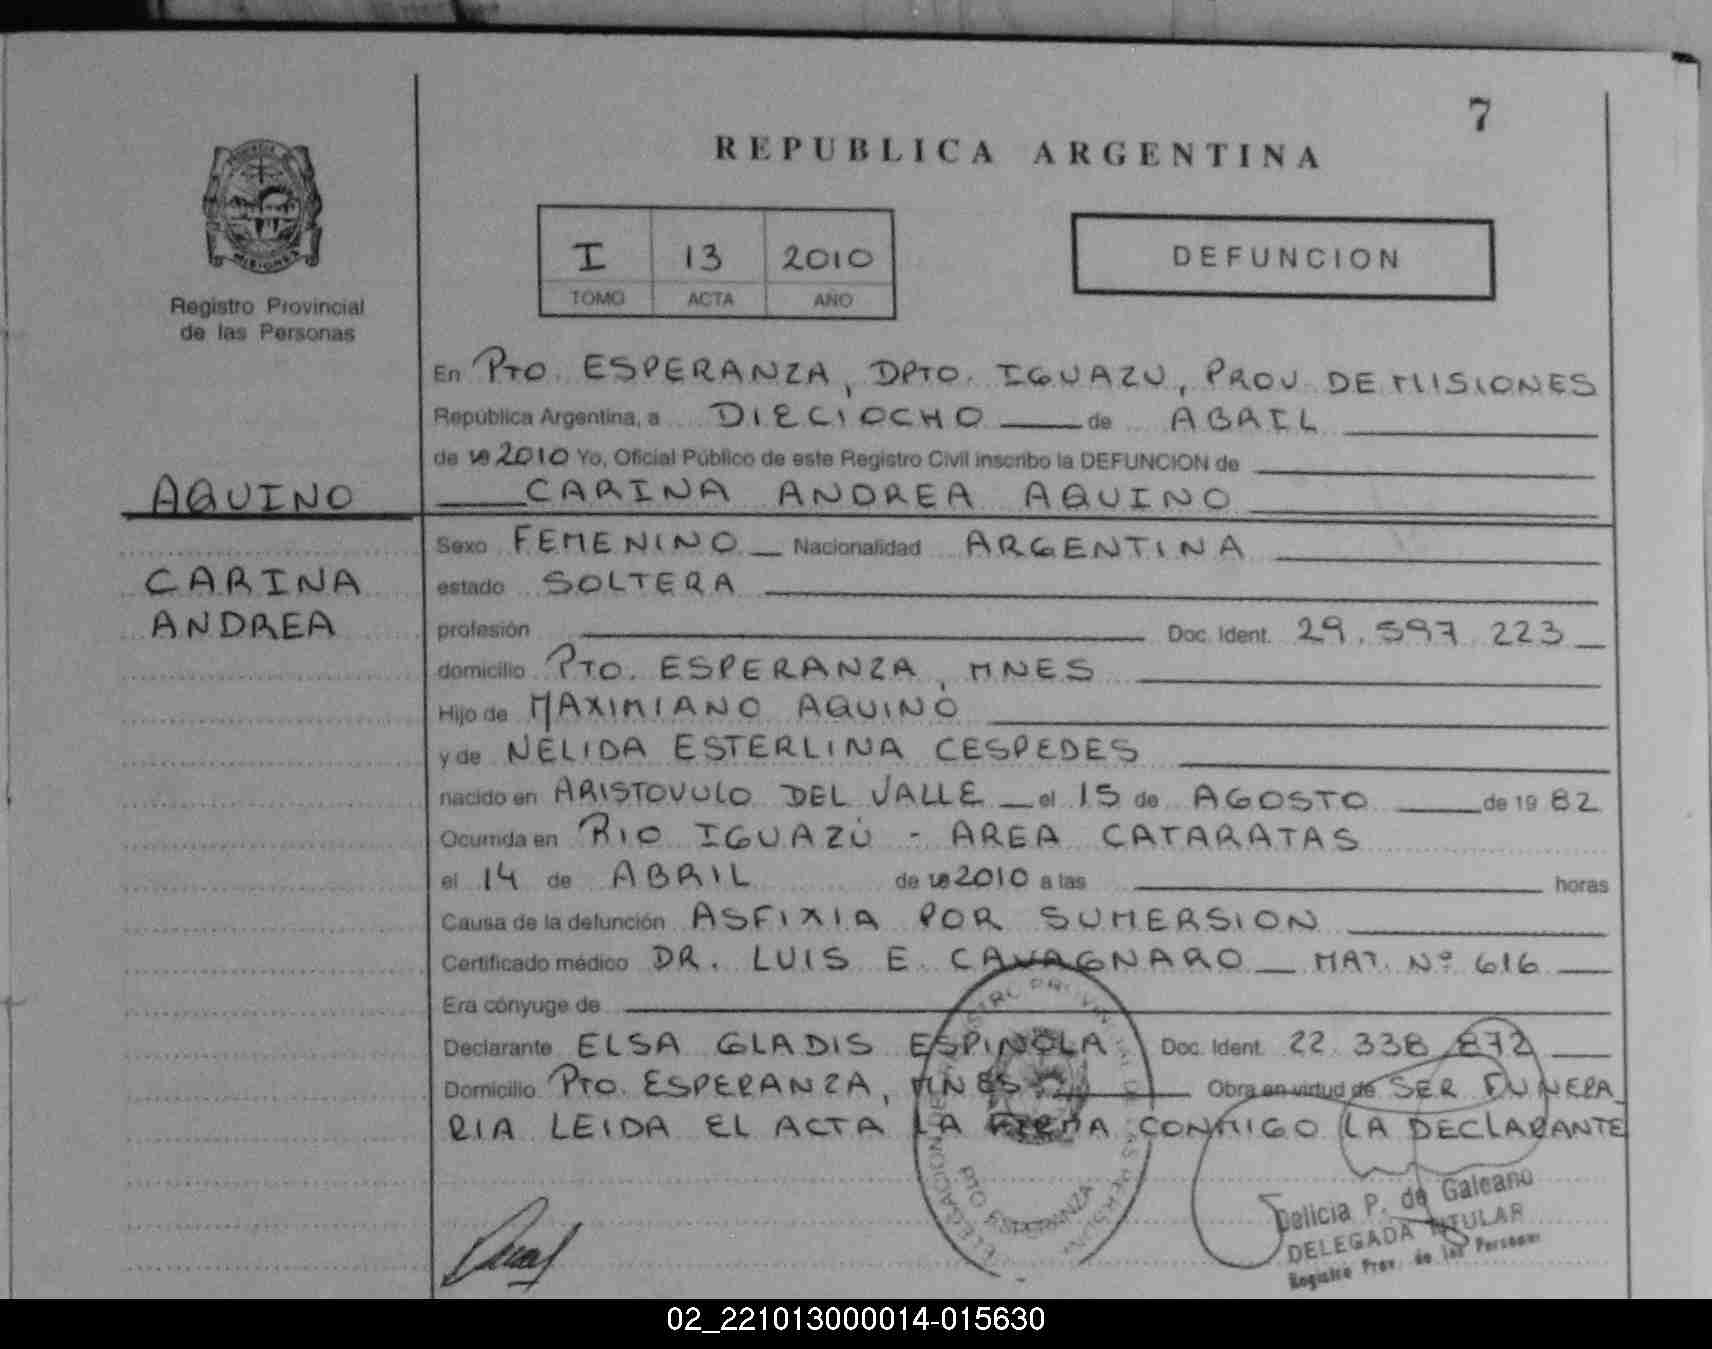 7
REPUBLICA ARGENTINA
I 13 2010
TOMO ACTA AÑO
DEFUNCION
PROVINCIA DE
MISIONES
Registro Provincial
de las Personas
En PTO. ESPERANZA, DPTO. IGUAZU, PROV. DE MISIONES
República Argentina, a DIECIOCHO de ABRIL
de 19 2010 Yo, Oficial Público de este Registro Civil inscribo la DEFUNCION de
AQUINO CARINA ANDREA AQUINO
Sexo FEMENINO Nacionalidad ARGENTINA
CARINA estado SOLTERA
ANDREA profesión Doc. Ident. 29.597.223
domicilio PTO. ESPERANZA, MNES
Hijo de MAXIMIANO AQUINO
y de NELIDA ESTERLINA CESPEDES
nacido en ARISTOVULO DEL VALLE el 15 de AGOSTO de 19 82
Ocurrida en RIO IGUAZÚ - AREA CATARATAS
el 14 de ABRIL de 19 2010 a las horas
Causa de la defunción ASFIXIA POR SUMERSION
Certificado médico DR. LUIS E. CAVAGNARO MAT. Nº 616
Era cónyuge de
Declarante ELSA GLADIS ESPINOLA Doc. Ident. 22.338.872
Domicilio PTO. ESPERANZA, MNES Obra en virtud de SER FUNERA
RIA LEIDA EL ACTA LA FIRMA CONMIGO LA DECLARANTE
PTO ESPERANZA
Delicia P. de Galeano
DELEGADA TITULAR
Registro Prov. de las Personas
02_221013000014-015630